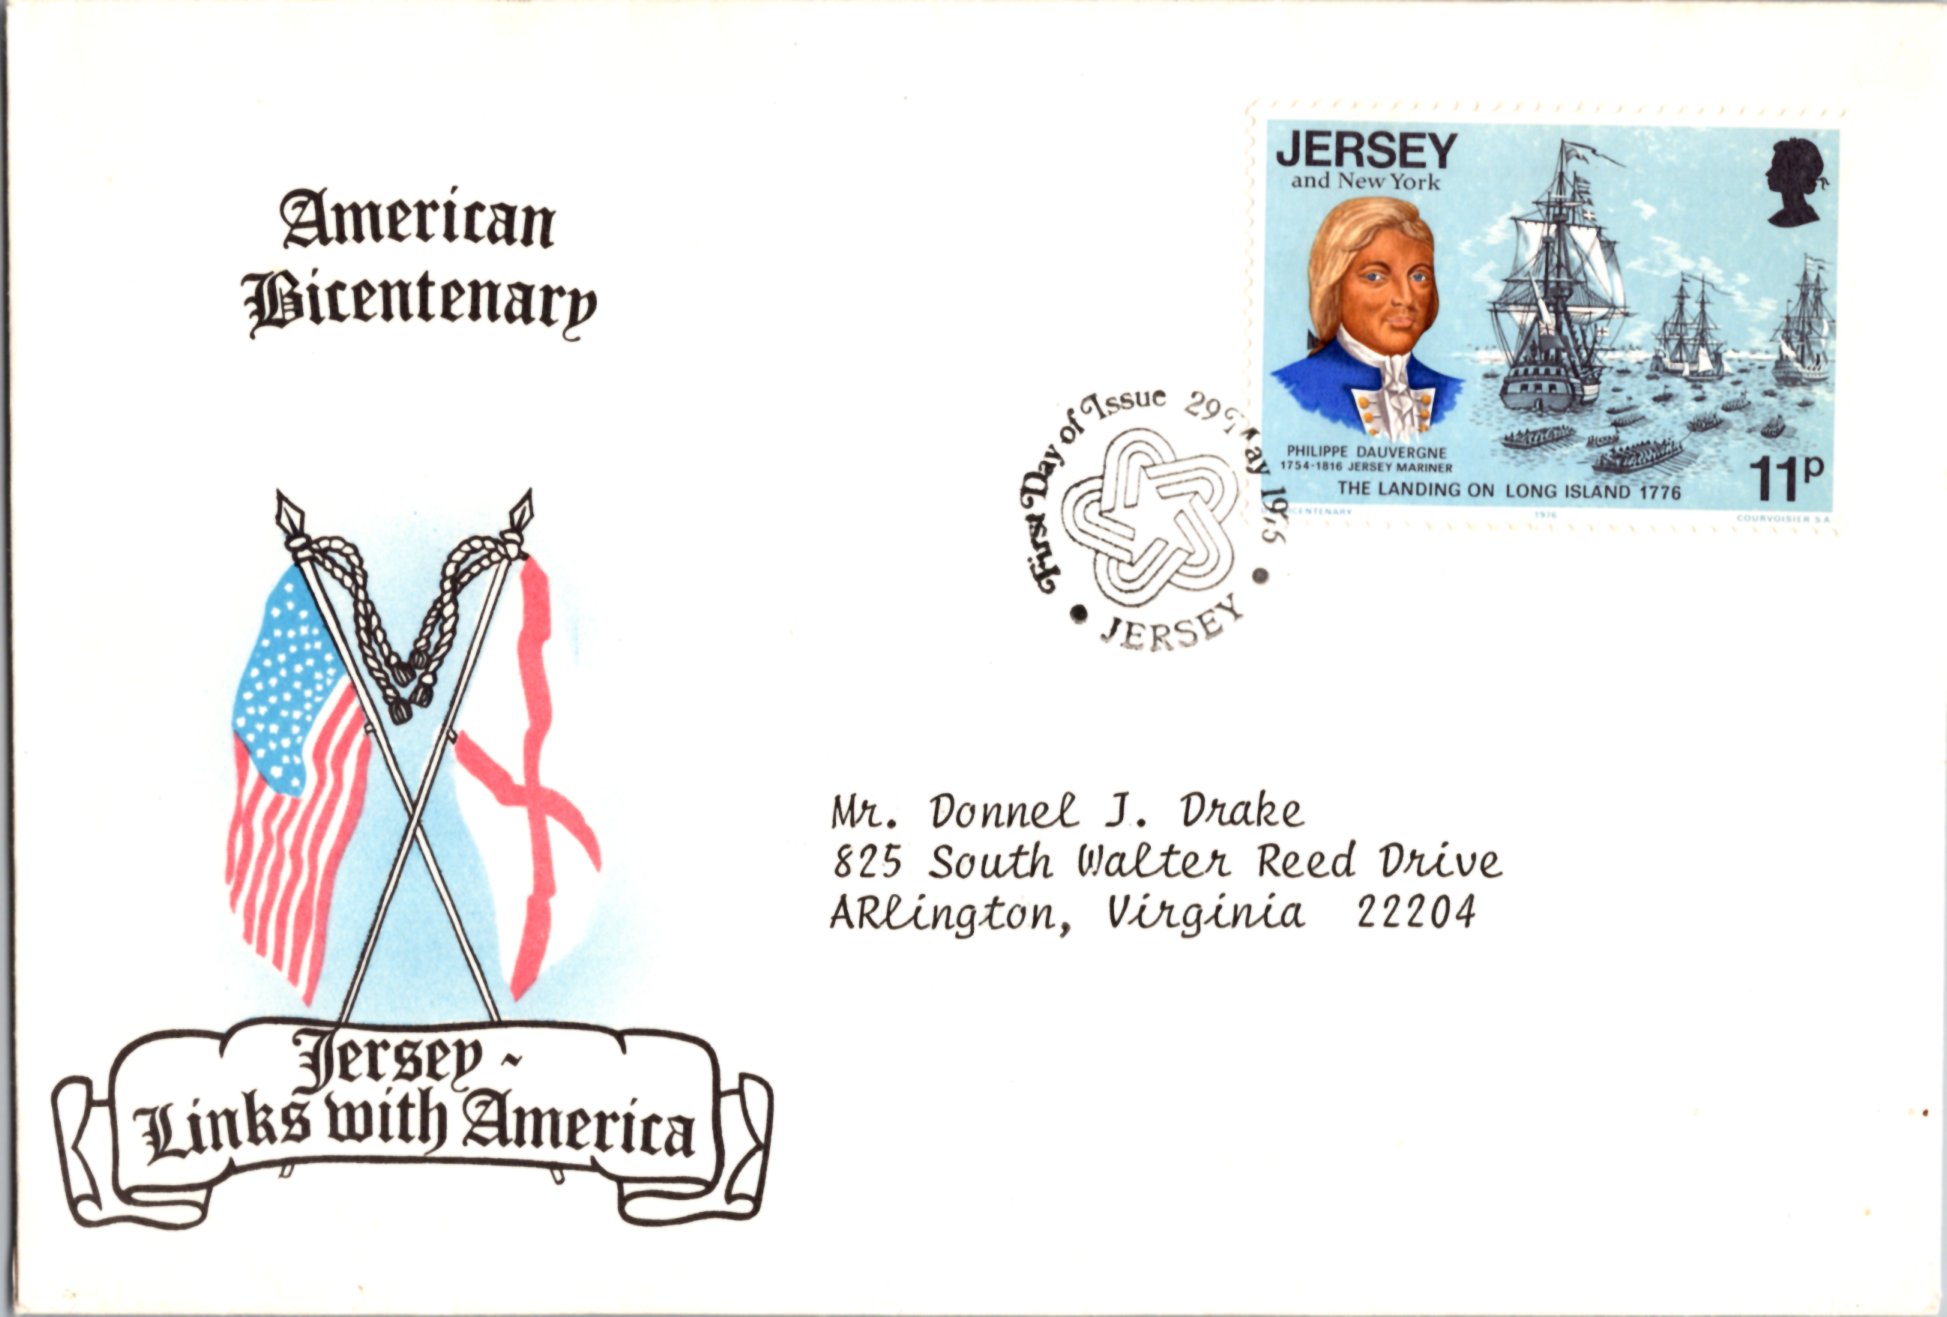 American
Bicentenary
JERSEY
and New York
PHILIPPE DAUVERGNE
1754-1816 JERSEY MARINER
THE LANDING ON LONG ISLAND 1776
11P
BICENTENARY
1976
COURVOISIER S.A
First Day of Issue 29 May 1976
JERSEY
Mr. Donnel J. Drake
825 South Walter Reed Drive
ARlington, Virginia 22204
Jersey ~
Links with America